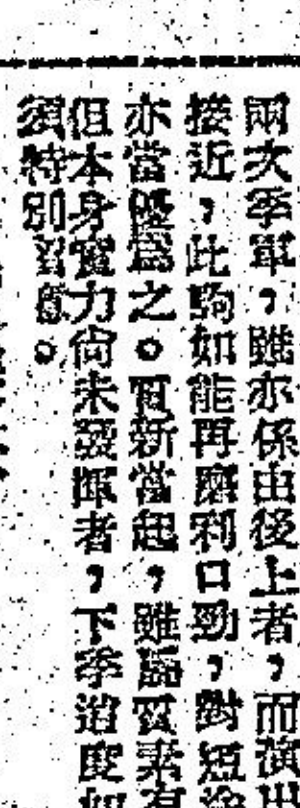 兩次季軍，雖亦係由後上者，而演出
接近，此駒如能再磨利口勁，對短途
亦當優為之。新當起，雖屬素有
但本身實力尚未發揮者，下季追度如
須特別留意。